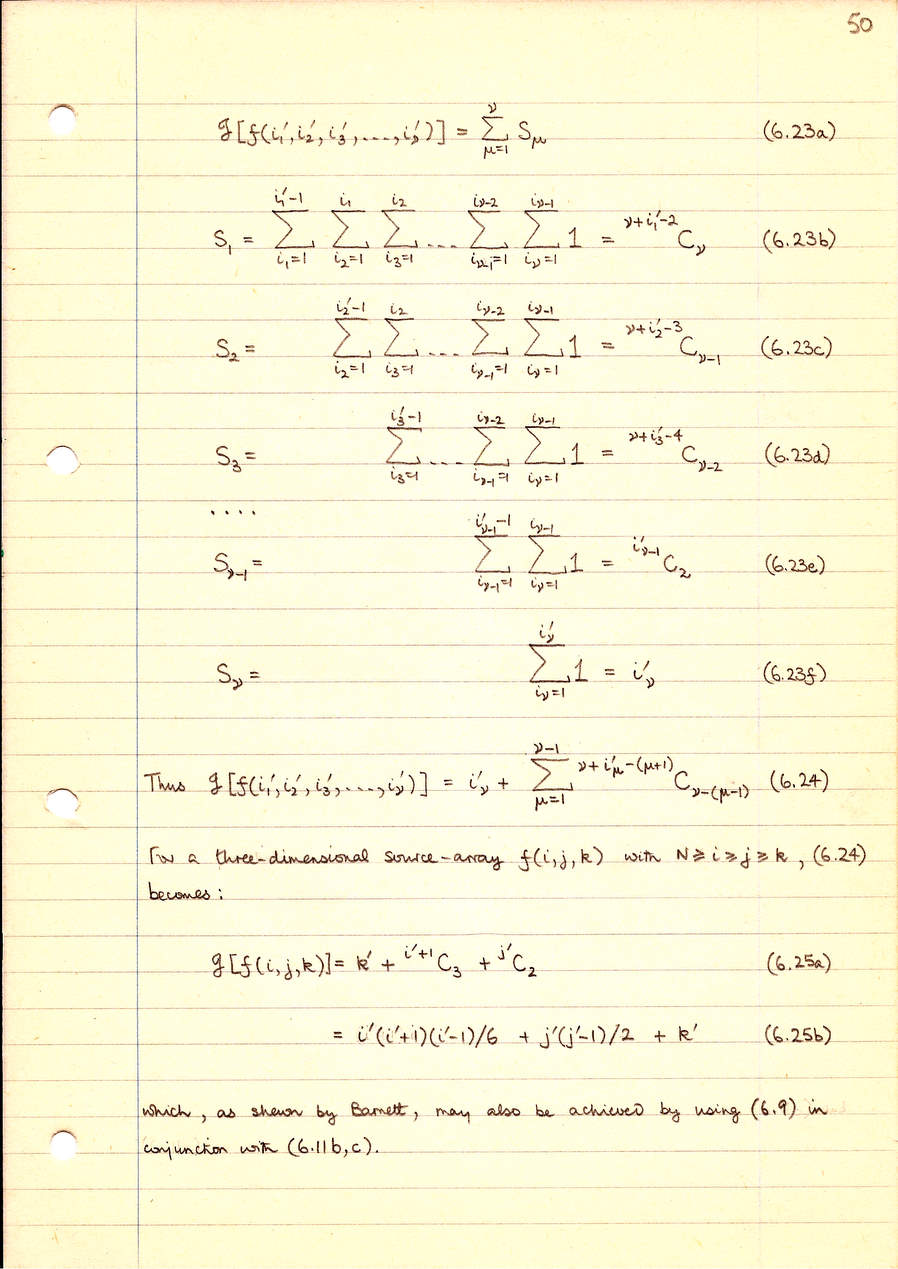 50
g[f(i₁′,i₂′,i₃′,...,i_ν′)] = ∑_{μ=1}^{ν} S_μ (6.23a)
S₁ = ∑_{i₁=1}^{i₁′-1} ∑_{i₂=1}^{i₁} ∑_{i₃=1}^{i₂} ... ∑_{i_{ν-1}=1}^{i_{ν-2}} ∑_{i_ν=1}^{i_{ν-1}} 1 = ^{ν+i₁′-2}C_ν (6.23b)
S₂ = ∑_{i₂=1}^{i₂′-1} ∑_{i₃=1}^{i₂} ... ∑_{i_{ν-1}=1}^{i_{ν-2}} ∑_{i_ν=1}^{i_{ν-1}} 1 = ^{ν+i₂′-3}C_{ν-1} (6.23c)
S₃ = ∑_{i₃=1}^{i₃′-1} ... ∑_{i_{ν-1}=1}^{i_{ν-2}} ∑_{i_ν=1}^{i_{ν-1}} 1 = ^{ν+i₃′-4}C_{ν-2} (6.23d)
....
S_{ν-1} = ∑_{i_{ν-1}=1}^{i′_{ν-1}-1} ∑_{i_ν=1}^{i_{ν-1}} 1 = ^{i′_{ν-1}}C₂ (6.23e)
S_ν = ∑_{i_ν=1}^{i_ν′} 1 = i_ν′ (6.23f)
Thus g[f(i₁′,i₂′,i₃′,....,i_ν′)] = i_ν′ + ∑_{μ=1}^{ν-1} ^{ν+i_μ′-(μ+1)}C_{ν-(μ-1)} (6.24)
For a three-dimensional source-array f(i,j,k) with N⩾i⩾j⩾k, (6.24)
becomes:
g[f(i,j,k)] = k′ + ^{i′+1}C₃ + ^{j′}C₂ (6.25a)
= i′(i′+1)(i′-1)/6 + j′(j′-1)/2 + k′ (6.25b)
which, as shewn by Barnett, may also be achieved by using (6.9) in
conjunction with (6.11b,c).